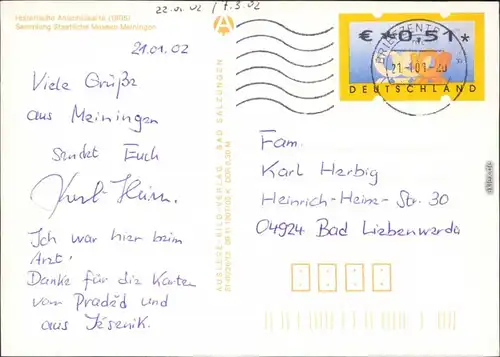 Historische Ansichtskarte (1898)
Sammlung Staatliche Museen Meiningen
22.01.02 / 7.3.02
21.01.02
Viele Grüße
aus Meiningen
sendet Euch
Ich war hier beim
Arzt!
Danke für die Karten
vom Praděd und
aus Jésenik.
AUSLESE-BILD-VERLAG · BAD SALZUNGEN
€ **0,51*
BRIEFZENTRUM
21-1 01-20
DEUTSCHLAND
Fam.
Karl Herbig
Heinrich-Heine-Str. 30
04924 Bad Liebenwerda